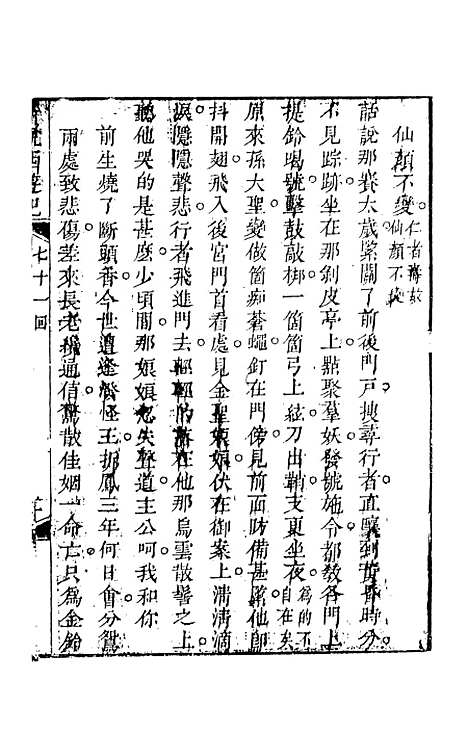 仙顏不變仁者壽故仙顏不變
話說那賽太歲緊關了前後門戶搜尋行者直嚷到黃昏時分
不見踪跡坐在那剝皮亭上點聚羣妖發號施令都教各門上
提鈴喝號擊鼓敲梆一箇箇弓上絃刀出鞘支更坐夜為的不自在矣
原來孫大聖變做箇痴蒼蠅釘在門傍見前面防備甚緊他即
抖開翅飛入後宮門首看處見金聖娘娘伏在御案上清清滴
淚隱隱聲悲行者飛進門去輕輕的落在他那烏雲散髻之上
聽他哭的是甚麽少頃間那娘娘忽失聲道主公呵我和你
前生燒了斷頭香今世遭逢潑怪王拆鳳三年何日會分鴛
兩處致悲傷差來長老纔通信驚散佳姻一命亡只為金鈴
西遊記
七十一回